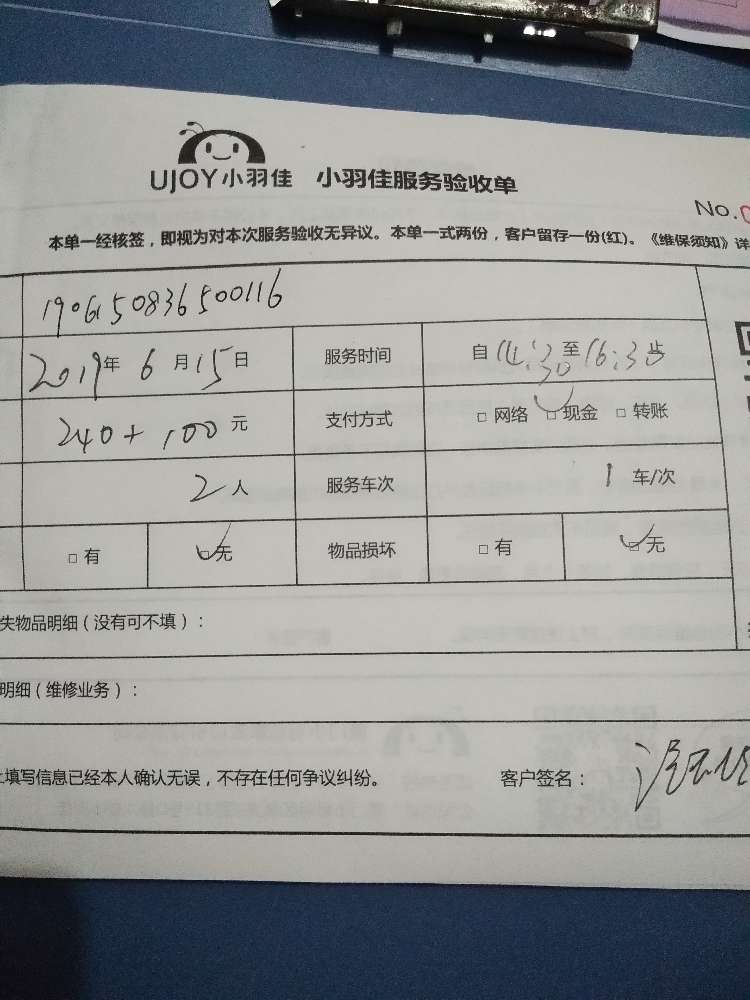 UJOY小羽佳 小羽佳服务验收单
No.0
本单一经核签，即视为对本次服务验收无异议。本单一式两份，客户留存一份(红)。《维保须知》详
190615083650​0116
2019年 6月15日 服务时间 自 14:30 至 16:30 止
240+100 元 支付方式 □ 网络 □ 现金 □ 转账
2 人 服务车次 1 车/次
□ 有 □ 无 物品损坏 □ 有 □ 无
失物品明细（没有可不填）：
明细（维修业务）：
上填写信息已经本人确认无误，不存在任何争议纠纷。 客户签名：